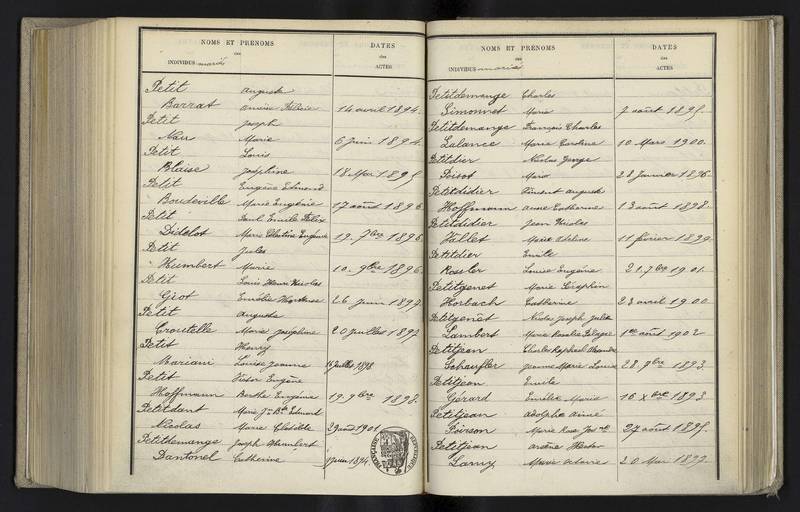 NOMS ET PRÉNOMS
des
INDIVIDUS mariés
DATES
des
ACTES
Petit Auguste
Barrat 14 avril 1894.
Petit Joseph
Nau Marie 6 juin 1894.
Petit Louis
Blaise Joséphine 18 Mai 1895
Petit Eugène Edmond
Boudeville Marie Eugénie 17 août 1896
Petit Paul Emile Félix
Didelot Marie Célestine Eugénie 19. 7bre 1896
Petit Jules
Humbert Marie 10. 9bre 1896.
Petit Louis Henri Nicolas
Giot Emélie Hortense 26 juin 1897
Petit Auguste
Croutelle Marie Joséphine 20 juillet 1897
Petit Henry
Mariani Louise Jeanne 16 juillet 1898
Petit Victor Eugène
Hoffmann Berthe Eugénie 19. 9bre 1898.
Petitdant Marie Edmond
Nicolas Marie Clotilde 29 août 1901
Petitdemange Joseph Humbert
Dantonel Catherine juin 1894.
NOMS ET PRÉNOMS
des
INDIVIDUS mariés
DATES
des
ACTES
Petitdemange Charles
Simonnet Marie 7 août 1895.
Petitdemange François Charles
Lalance Marie Caroline 10 Mars 1900.
Petitdier Nicolas George
Poirot Marie 28 Janvier 1896.
Petitdidier Vincent Auguste
Hoffmann Anne Catherine 13 août 1898.
Petitdidier Jean Nicolas
Vallet Marie Adeline 11 février 1899.
Petitdier Emile
Rossler Louise Eugénie 21. 7bre 1901.
Petitgenet Marie Séraphin
Horbach Catherine 23 avril 1900
Petitgenêt Nicolas Joseph Jules
Lambert Marie Rosalie Pélagie 1er août 1902
Petitjean Charles Raphaël Alexandre
Schaufler Jeanne Marie Louise 28. 9bre 1893.
Petitjean Emile
Gérard Emélie Marie 16 Xbre 1893
Petitjean Adolphe Aimé
Poirson Marie Rose 27 août 1895.
Petitjean Arsène Hector
Lamy Marie Octavie 20 Mai 1897.